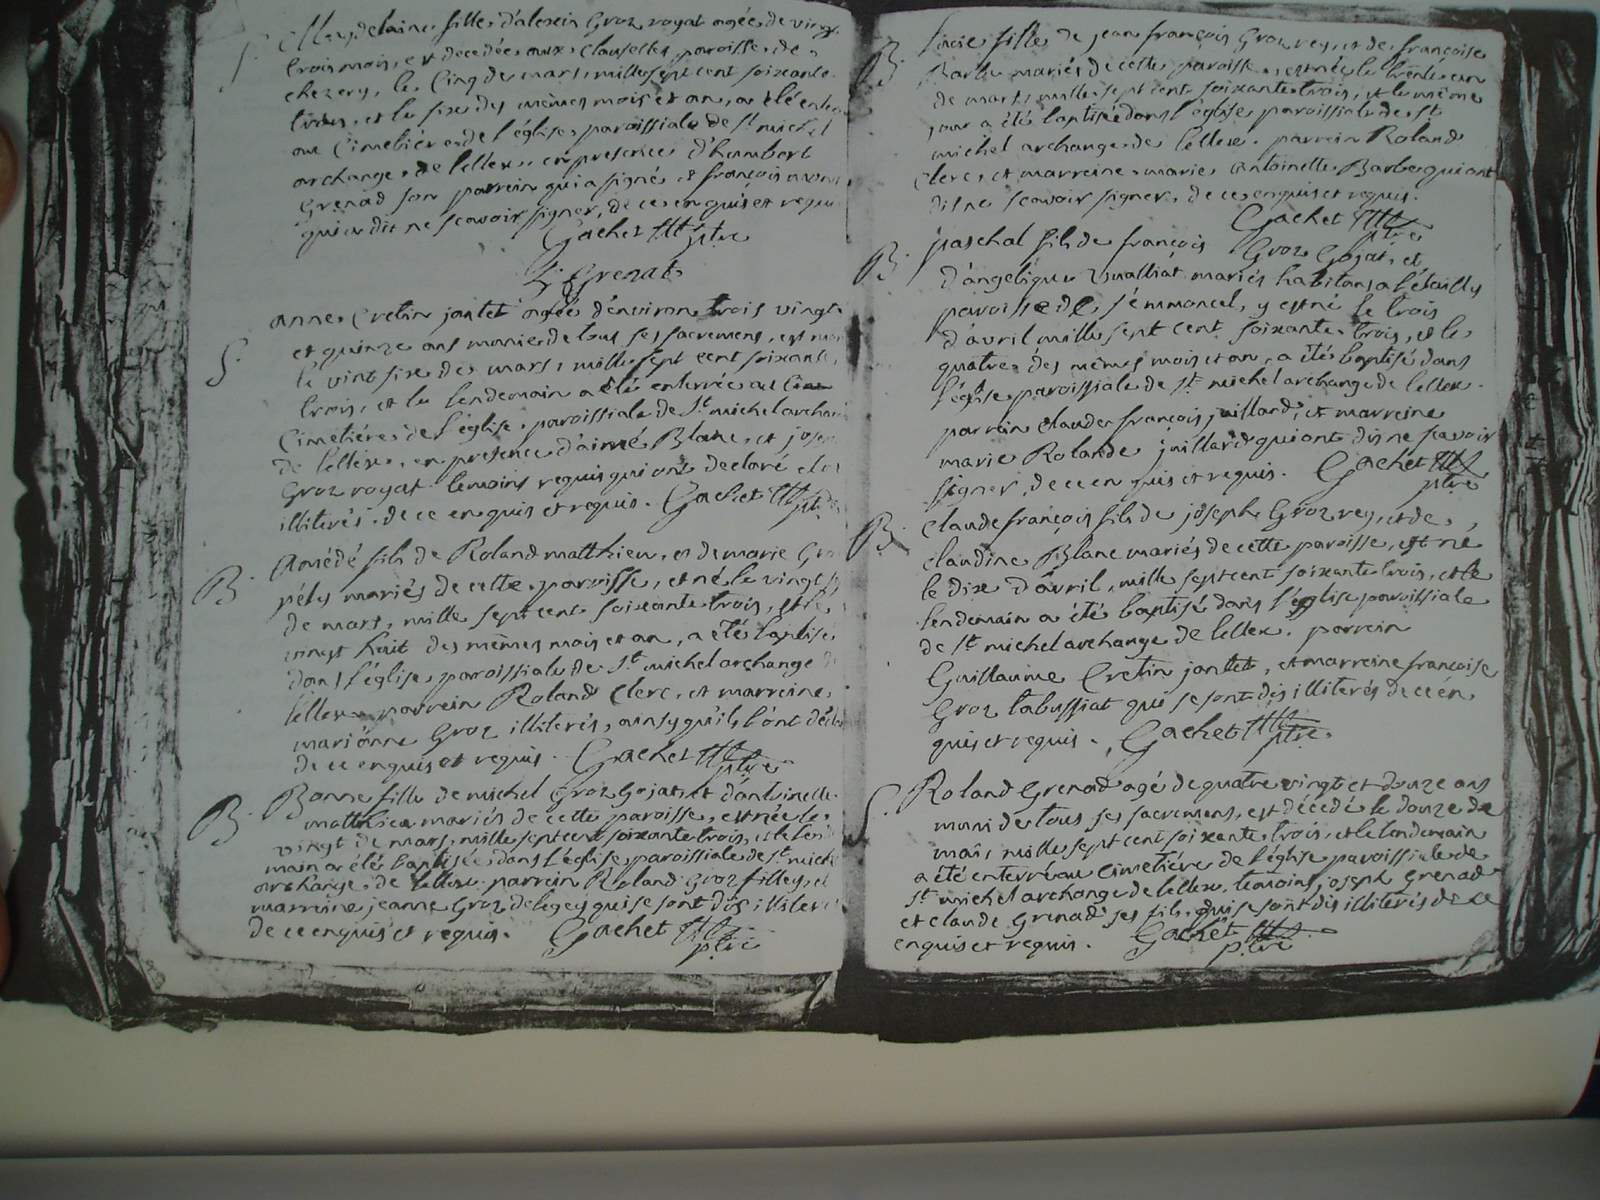 S. Magdelaine fille d'alexis Groz royat agée de vingt
trois mois, est decedée aux Clauselles paroisse de
chezery, le Cinq de mars, mille sept cent soixante
trois, et le sixe des mêmes mois et an, a été enter
au Cimetière de l'église paroissiale de St michel
archange de lellex, en presence d'humbert
Grenad son parrein qui a signé, et françois
qui a dit ne scavoir signer, de ce enquis et requi
Gachet ptre
h. Grenad
S. anne Cretin jantet agée d'environ trois vingt
et quinze ans munie de tous ses sacremens, est mor
le vint sixe de mars, mille sept cent soixante
trois, et le lendemain a été enterrée au
Cimetiére de l'église paroissiale de St michel archan
de lellex, en presence d'aimé Blanc, et jose
Groz royat temoins requis qui ont declaré
illiterés de ce enquis et requis. Gachet ptre
B. Amédé fils de Roland matthieu, et de marie Gro
pély mariés de cette paroisse, est né le vingt
de mars, mille sept cent soixante trois, et le
vingt huit des mêmes mois et an, a été baptisé
dans l'église paroissiale de St michel archange
lellex parrein Roland Clerc, et marreine
marionne Groz illiterés, ainsy qu'ils l'ont décla
de ce enquis et requis. Gachet ptre
B. Bonne fille de michel Groz Gojat, et d'antoinelle
matthieu mariés de cette paroisse, est née le
vingt de mars, mille sept cent soixante trois, et le len
main a été baptisée dans l'église paroissiale de St mich
archange de lellex. parrein Roland Groz filley, et
marreine jeanne Groz delegey qui se sont dis illiteré
de ce enquis et requis. Gachet ptre
B. lucie fille de jean françois Groz rey, et de françoise
Barbe mariés de cette paroisse, est née le trente un
de mars, mille sept cent soixante trois, et le même
jour a été baptisée dans l'église paroissiale de St
michel archange de lellex. parrein Roland
Clerc, et marreine marie Antoinelle Barbe qui ont
dis ne scavoir signer, de ce enquis et requis.
Gachet ptre
B. paschal fils de françois Groz Gojat, et
d'angelique Vualliat mariés habitans a
paroisse de, y est né le trois
d'avril mille sept cent soixante trois, et le
quatre des mêmes mois et an, a été baptisé dans
l'église paroissiale de St michel archange de lellex.
parrein claude françois juillard, et marreine
marie Rolande juillard qui ont dis ne scavoir
signer, de ce enquis et requis. Gachet ptre
B. Claude françois fils de joseph Groz rey, et de
claudine Blanc mariés de cette paroisse, est né
le dix d'avril, mille sept cent soixante trois, et le
lendemain a été baptisé dans l'église paroissiale
de St michel archange de lellex. parrein
Guillaume Cretin jantet, et marreine francoise
Groz tabussiat qui se sont dis illiterés de ce en
quis et requis. Gachet ptre
S. Roland Grenad agé de quatre vingt et douze ans
muni de tous ses sacremens, est décédé le douze de
mai, mille sept cent soixante trois, et le lendemain
a été enterré au Cimetiére de l'église paroissiale de
St michel archange de lellex. temoins joseph Grenad
et claude Grenad ses fils, qui se sont dis illiterés de ce
enquis et requis. Gachet ptre